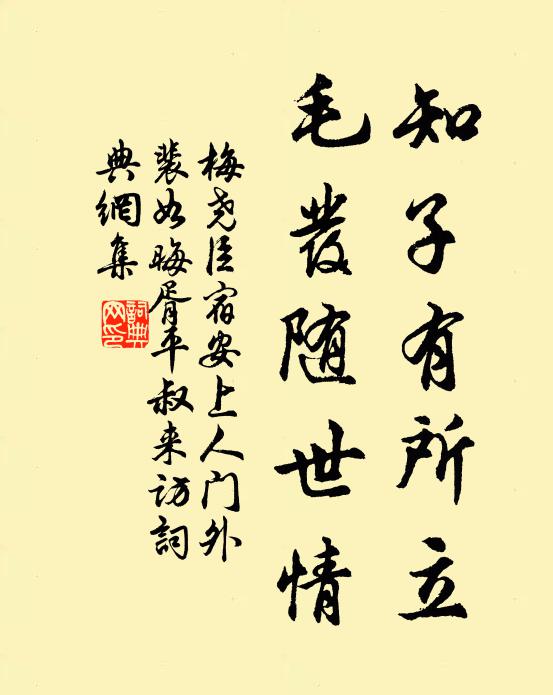 知子有所立
毛发随世情
梅尧臣宿安上人门外
裴如晦胥平叔来访詞
典網集
詞典
网印